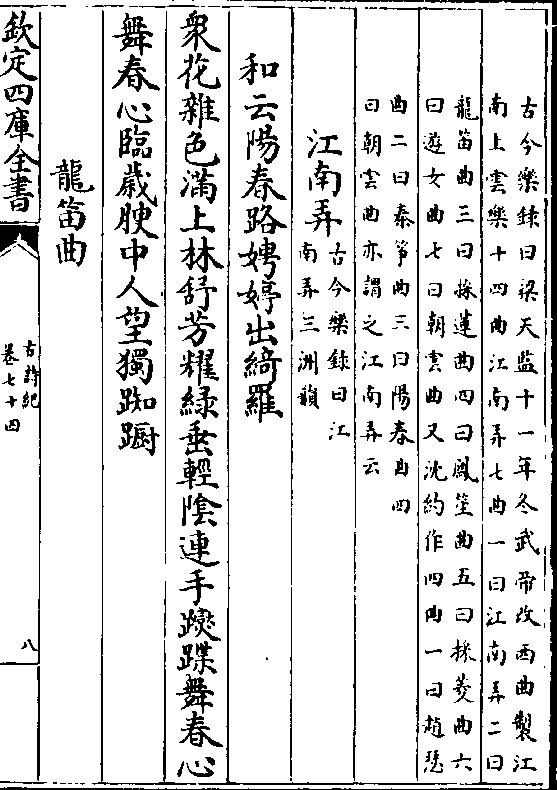 古今樂録曰梁天監十一年冬武帝改西曲製江
南上雲樂十四曲江南弄七曲一曰江南弄二曰
龍笛曲三曰採蓮曲四曰鳳笙曲五曰採菱曲六
曰遊女曲七曰朝雲曲又沈約作四曲一曰趙瑟
曲二曰秦筝曲三曰陽春曲四
曰朝雲曲亦謂之江南弄云
江南弄古今樂録曰江
南弄三洲韻
和云陽春路娉婷出綺羅
衆花雜色滿上林舒芳耀緑垂輕陰連手躞蹀舞春心
舞春心臨歳腴中人望獨踟蹰
龍笛曲
欽定四庫全書
古詩紀
卷七十四
八